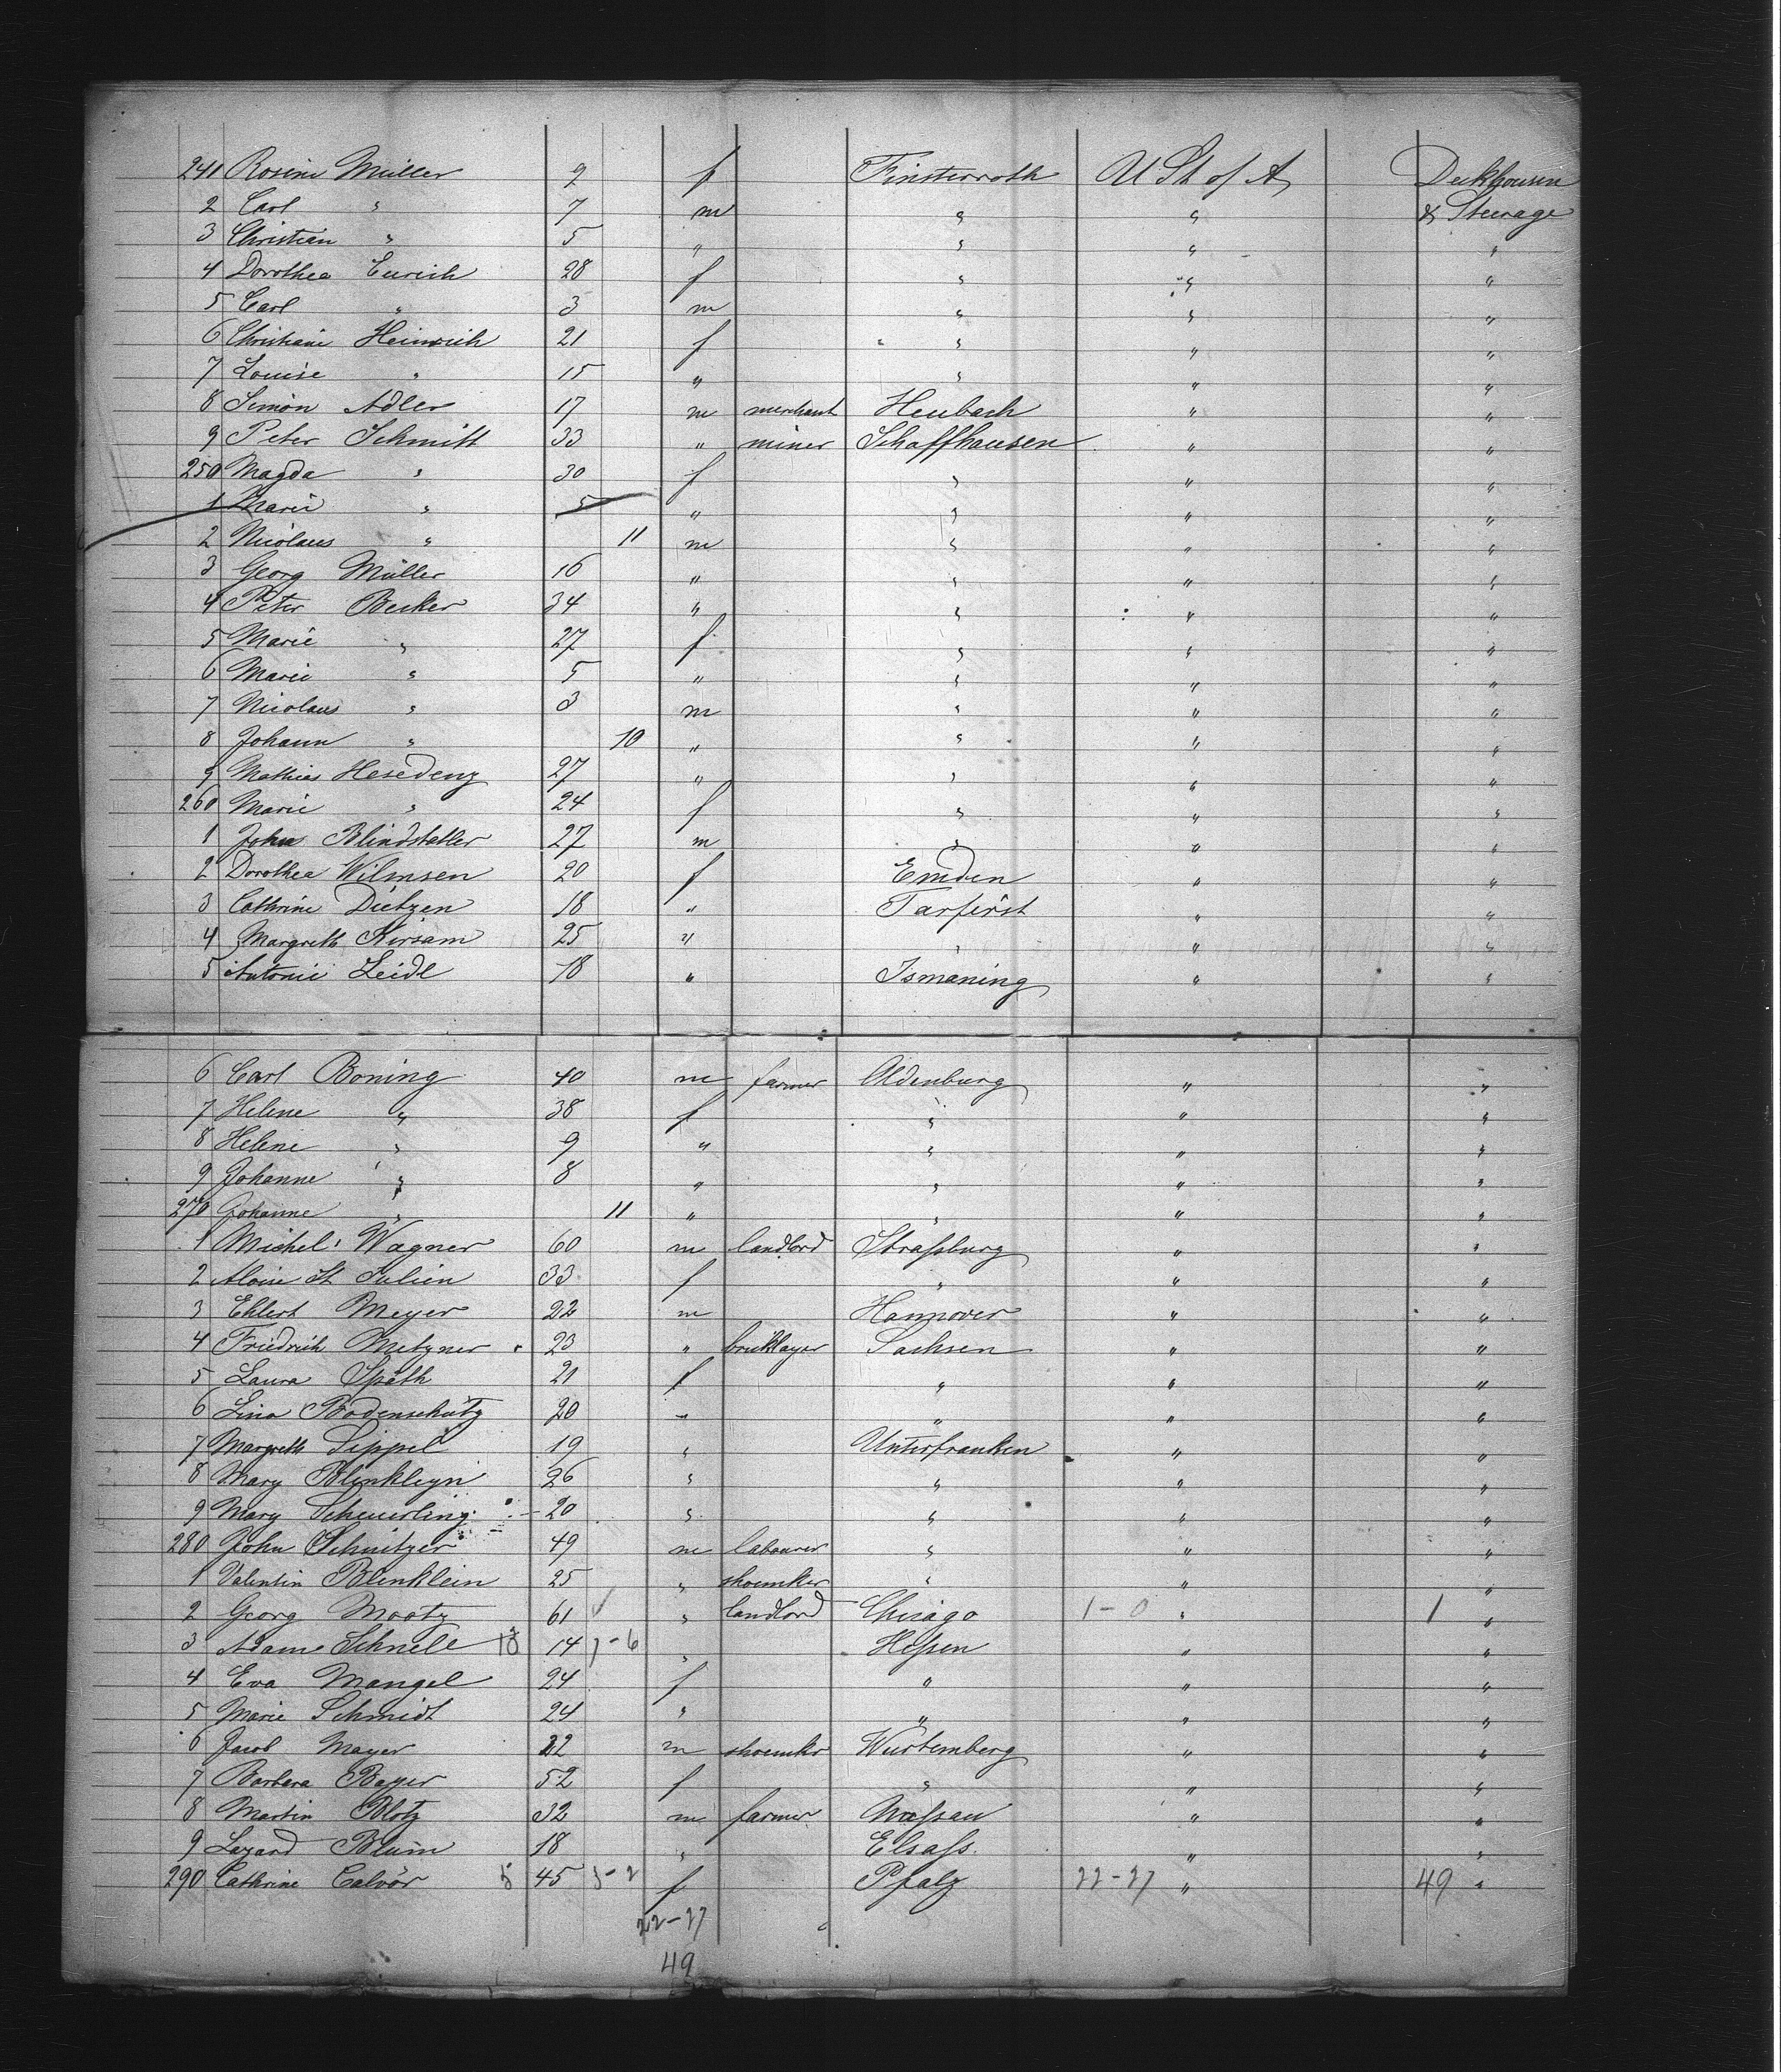 241 Rosine Müller 9 f Finsterroth U St of A Deckhousen
2 Carl " 7 m " " & Steerage
3 Christian " 5 " " " "
4 Dorothea Eurich 28 f " " "
5 Carl " 3 m " " "
6 Christiane Heinrich 21 f " " "
7 Louise " 15 " " " "
8 Simon Adler 17 m merchant Heubach " "
9 Peter Schmitt 33 " miner Schaffhausen " "
250 Magda " 30 f " " "
1 Marie " 5 " " " "
2 Nicolaus " 11 m " " "
3 Georg Müller 16 " " " "
4 Peter Becker 34 " " " "
5 Marie " 27 f " " "
6 Marie " 5 " " " "
7 Nicolaus " 3 m " " "
8 Johann " 10 " " " "
9 Mathias Hesedenz 27 " " " "
260 Marie " 24 f " " "
1 Johns Blindstatler 27 m " " "
2 Dorothea Wilmsen 20 f Emden " "
3 Cathrine Dietzen 18 " Tarferst " "
4 Margreth Kirsam 25 " " " "
5 Antonie Leidl 18 " Ismaning " "
6 Carl Boning 40 m farmer Oldenburg " "
7 Helene " 38 f " " "
8 Helene " 9 " " " "
9 Johanne " 8 " " " "
270 Johanne " 11 " " " "
1 Michel Wagner 60 m landlord Straßburg " "
2 Aloise St Julien 33 f " " "
3 Ehlert Meyer 22 m Hannover " "
4 Friedrich Metzner 23 " bricklayer Sachsen " "
5 Laura Späth 21 f " " "
6 Lina Bodenschütz 20 " " " "
7 Margreth Sippel 19 " Unterfranken " "
8 Mary Blinkleyn 26 " " " "
9 Mary Scheuerling 20 " " " "
280 John Schnitzer 49 m labourer " " "
1 Valentin Blenklein 25 " shoemker " " "
2 Georg Mootz 61 " landlord Chicago 1-0 " 1 "
3 Adam Schnell 18 14 1-6 " Heßen " "
4 Eva Mangel 24 f " " "
5 Marie Schmidt 24 " " " "
6 Jacob Mayer 22 m shoemkr Würtemberg " "
7 Barbara Bayer 52 f " " "
8 Martin Blotz 32 m farmer Naßau " "
9 Lazard Blum 18 " Elsaß " "
290 Cathrine Calvör 5 45 3-2 f Pfalz 22-27 " 49 "
22-27
49